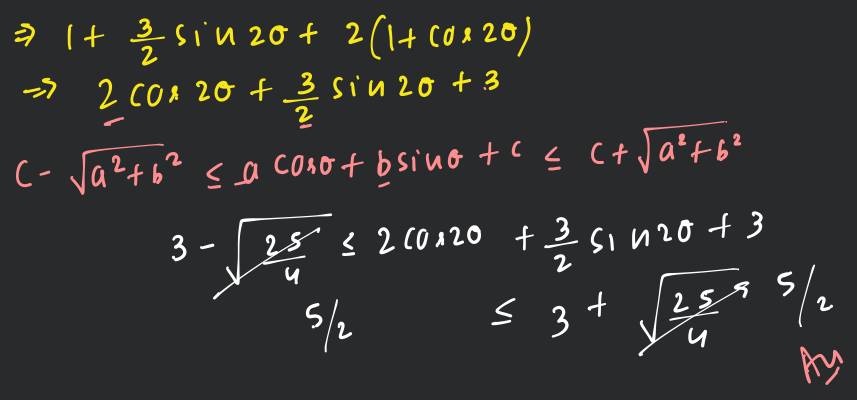 ⇒ 1 + 3/2 sin 2θ + 2(1 + cos 2θ)
⇒ 2 cos 2θ + 3/2 sin 2θ + 3
c - √(a² + b²) ≤ a cosθ + b sinθ + c ≤ c + √(a² + b²)
3 - √(25/4) ≤ 2 cos 2θ + 3/2 sin 2θ + 3
5/2 ≤ 3 + √(25/4) 5/2
Ans